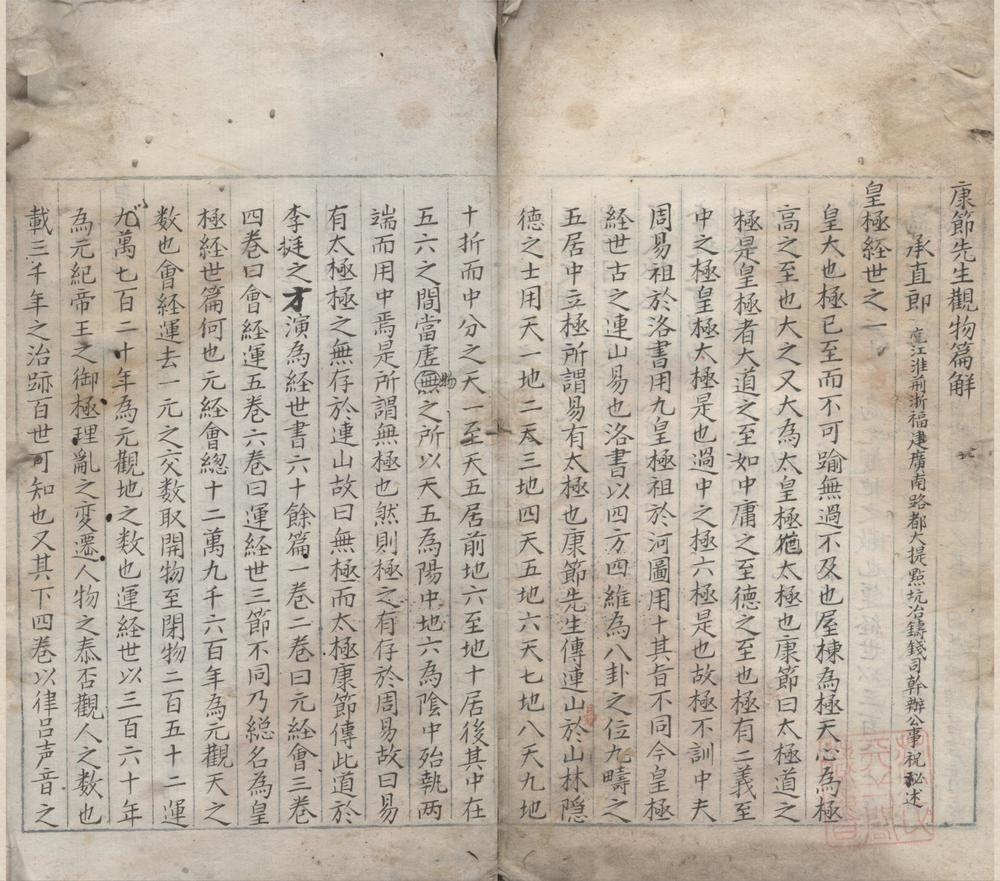 康節先生觀物篇解
承直郎 充江淮荊浙福建廣南路都大提點坑冶鑄錢司幹辦公事祝祕述
皇極経世之一
皇大也極已至而不可踰無過不及也屋棟為極天心為極
高之至也大之又大為太皇極猶太極也康節曰太極道之
極是皇極者大道之至如中庸之至德之至也極有二義至
中之極皇極太極是也過中之極六極是也故極不訓中夫
周易祖於洛書用九皇極祖於河圖用十其旨不同今皇極
経世古之連山易也洛書以四方四維為八卦之位九疇之
五居中立極所謂易有太極也康節先生傳連山於山林隠
德之士用天一地二天三地四天五地六天七地八天九地
十折而中分之天一至天五居前地六至地十居後其中在
五六之間當虛無物之所以天五為陽中地六為陰中殆執两
端而用中焉是所謂無極也然則極之有存於周易故曰易
有太極極之無存於連山故曰無極而太極康節傳此道於
李挺之才演為経世書六十餘篇一巻二巻曰元経會三巻
四巻曰會経運五巻六巻曰運経世三節不同乃総名為皇
極経世篇何也元経會總十二萬九千六百年為元觀天之
数也會経運去一元之交数取開物至閉物二百五十二運
九萬七百二十年為元觀地之数也運経世以三百六十年
為元紀帝王之御極理亂之変遷人物之泰否觀人之数也
載三千年之治跡百世可知也又其下四巻以律呂声音之